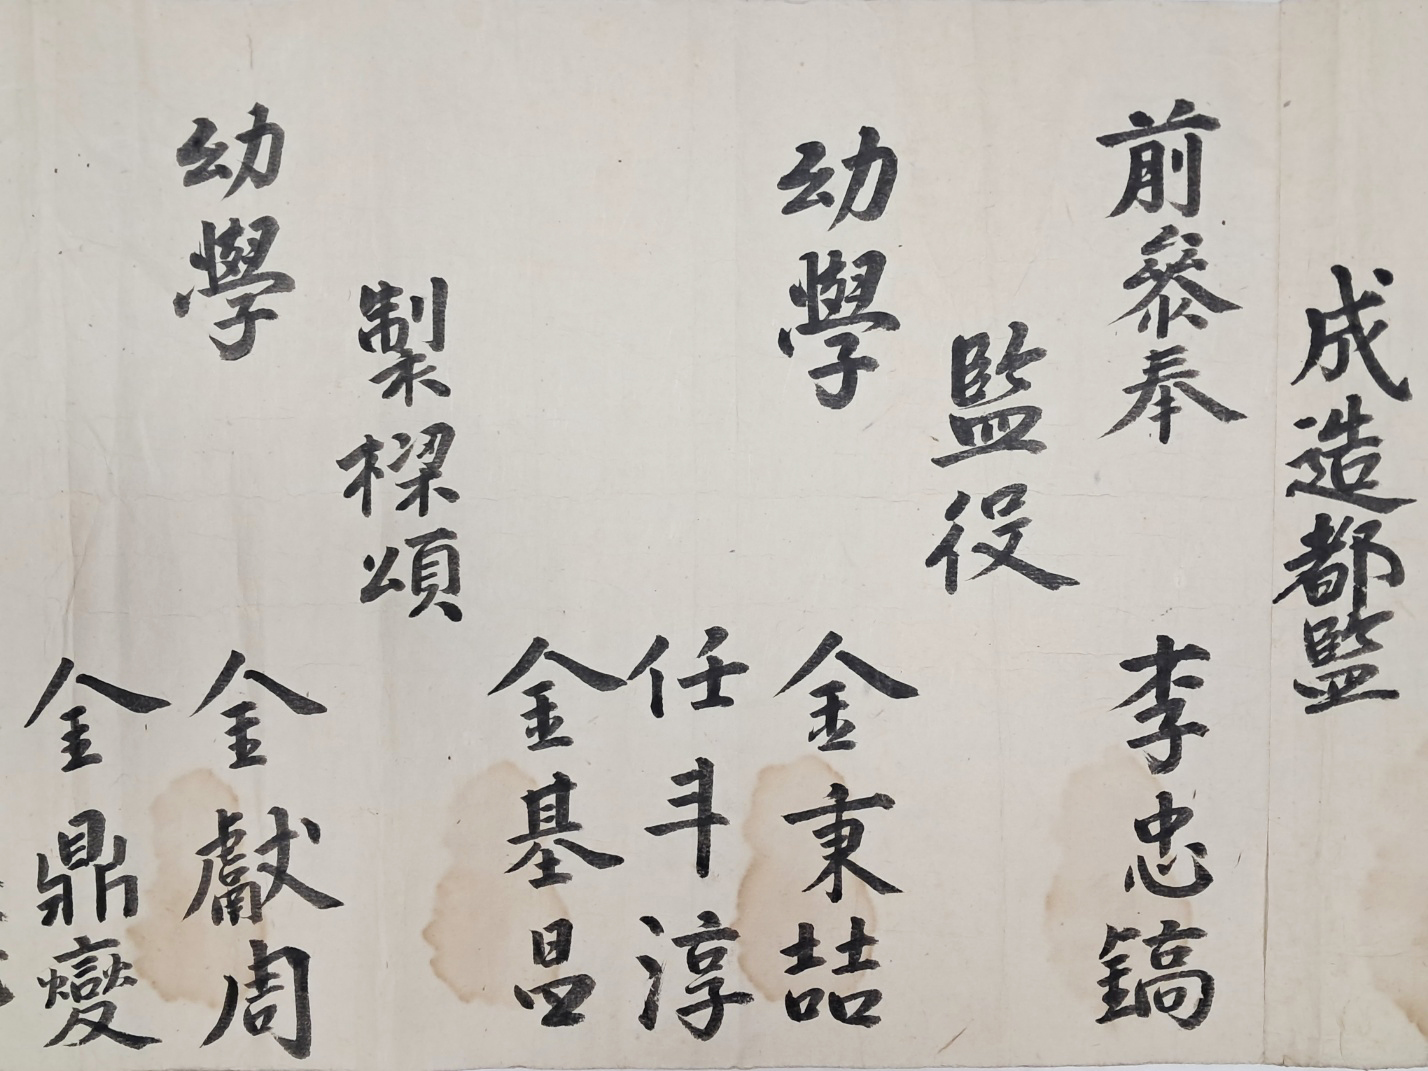 成造都監
前參奉 李忠鎬
監役
幼學 金秉喆
任斗淳
金基昌
製樑頌
幼學 金獻周
金鼎燮